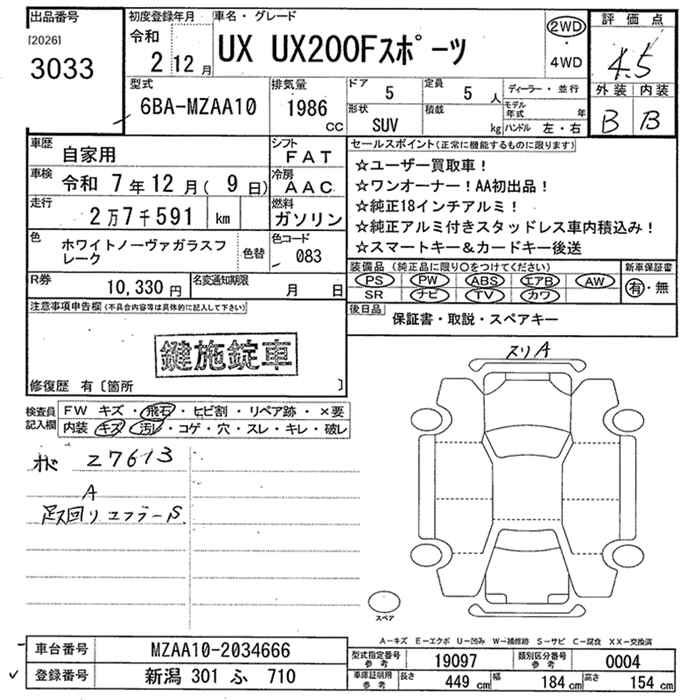 出品番号
[2026]
3033
初度登録年月
令和
2 12 月
車名・グレード
UX UX200Fスポーツ
2WD
・
4WD
評価点
4.5
外装 内装
B B
型式
6BA-MZAA10
排気量
1986
CC
ドア
5
定員
5 人
形状
SUV
積載
kg
ディーラー・並行
モデル年式 年
ハンドル 左・右
車歴
自家用
シフト
FAT
車検
令和 7年12月( 9日)
冷房
AAC
走行
2万7千591 km
燃料
ガソリン
色
ホワイトノーヴァガラスフレーク
色替
色コード
083
R券
10,330 円
名変通知期限
月 日
セールスポイント(正常に機能するものに限ります)
☆ユーザー買取車！
☆ワンオーナー！AA初出品！
☆純正18インチアルミ！
☆純正アルミ付きスタッドレス車内積込み！
☆スマートキー&カードキー後送
装備品(純正品に限り○をつけてください)
PS PW ABS エアB AW
SR ナビ TV カワ
新車保証書
有・無
後日品
保証書・取説・スペアキー
注意事項申告欄(不具合内容等は具体的に記入して下さい)
鍵施錠車
修復歴 有〔箇所 〕
検査員記入欄
FW キズ・飛石・ヒビ割・リペア跡・×要
内装 キズ・汚レ・コゲ・穴・スレ・キレ・破レ
Z7613
A
足廻り マフラーS
スリA
スペア
A-キズ E-エクボ U-凹み W-補修跡 S-サビ C-腐食 XX-交換済
車台番号
MZAA10-2034666
登録番号
新潟 301 ふ 710
型式指定番号
参考
19097
類別区分番号
参考
0004
車庫証明用
参考
長さ
449 cm
幅
184 cm
高さ
154 cm